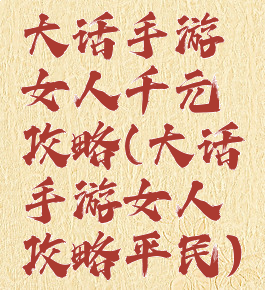 大话手游
女人千元
攻略(大话
手游女人
攻略平民)